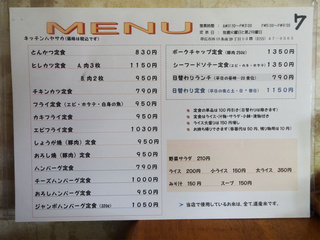 MENU
7
キッチンハヤサカ(価格は税込です)
とんかつ定食 830円
ヒレカツ定食 A.肉3枚 1150円
B.肉2枚 950円
チキンカツ定食 790円
フライ定食(エビ・ホタテ・白身の魚) 950円
カキフライ定食 950円
エビフライ定食 1030円
しょうが焼(豚肉)定食 950円
おろし焼(豚肉)定食 950円
ハンバーグ定食 950円
チーズハンバーグ定食 1000円
おろしハンバーグ定食 1050円
ジャンボハンバーグ定食 1050円
ポークチャップ定食 1350円
シーフードソテー定食 1350円
日替わりランチ 790円
日替わり定食 1150円
野菜サラダ 210円
ライス 200円 小ライス 150円 大ライス 350円
みそ汁 150円 スープ 150円
◇ 当店で使用しているお米は、全て道産米です。